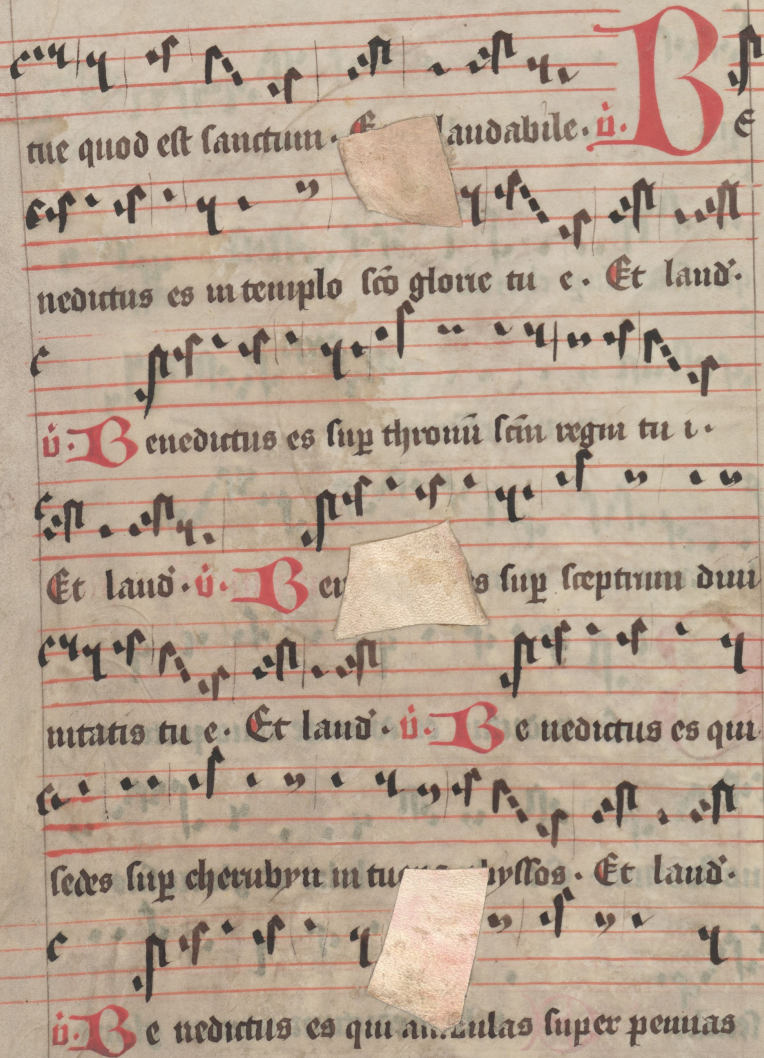 tue quod est sanctum. laudabile. v̇. BE
nedictus es in templo sc̄o glorie tu e. Et laud.
v̇. Benedictus es sup thronū sc̄m regni tu i.
Et laud. v̇. B sup sceptrum diui
nitatis tu e. Et laud. v̇. Be nedictus es qui
sedes sup cherubyn in Et laud.
v̇. Be nedictus es qui super pennas